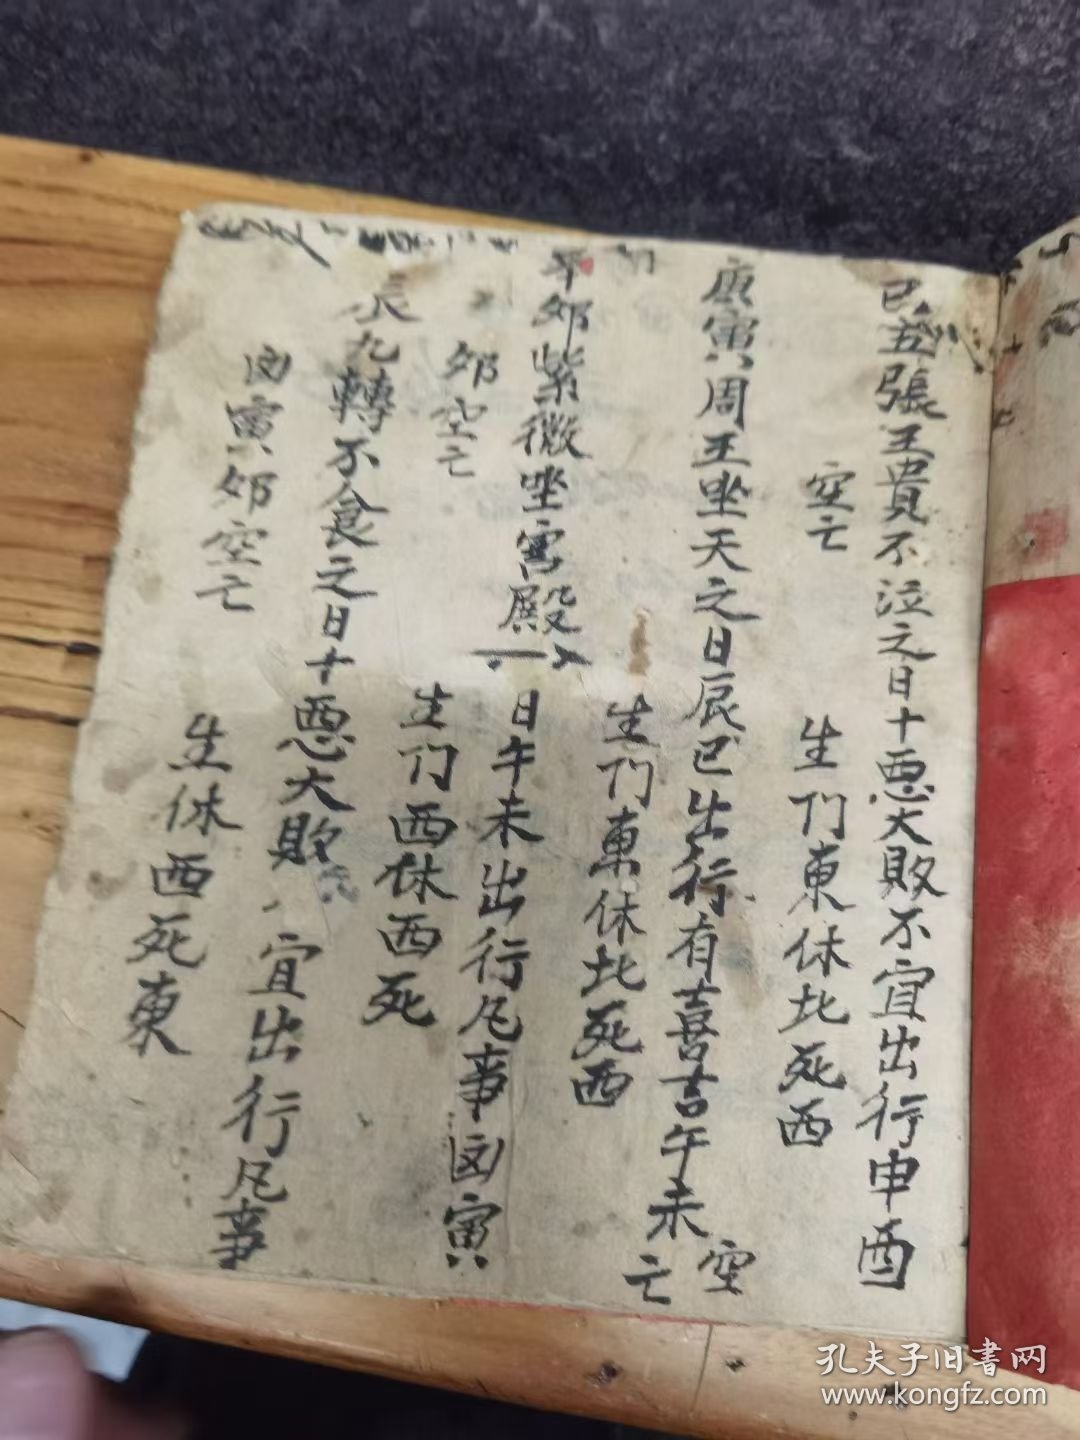 己丑張王貴不泣之日十惡大敗不宜出行申酉
空亡
生门東休北死西
庚寅周王坐天之日辰巳出行有喜吉午未
空亡
生门東休北死西
辛夘紫微坐宫殿
日午未出行凡事凶寅
夘空亡
生门西休西死
辰九轉不食之日十惡大敗
宜出行凡事
凶寅夘空亡
生休西死東
孔夫子旧書网
www.kongfz.com